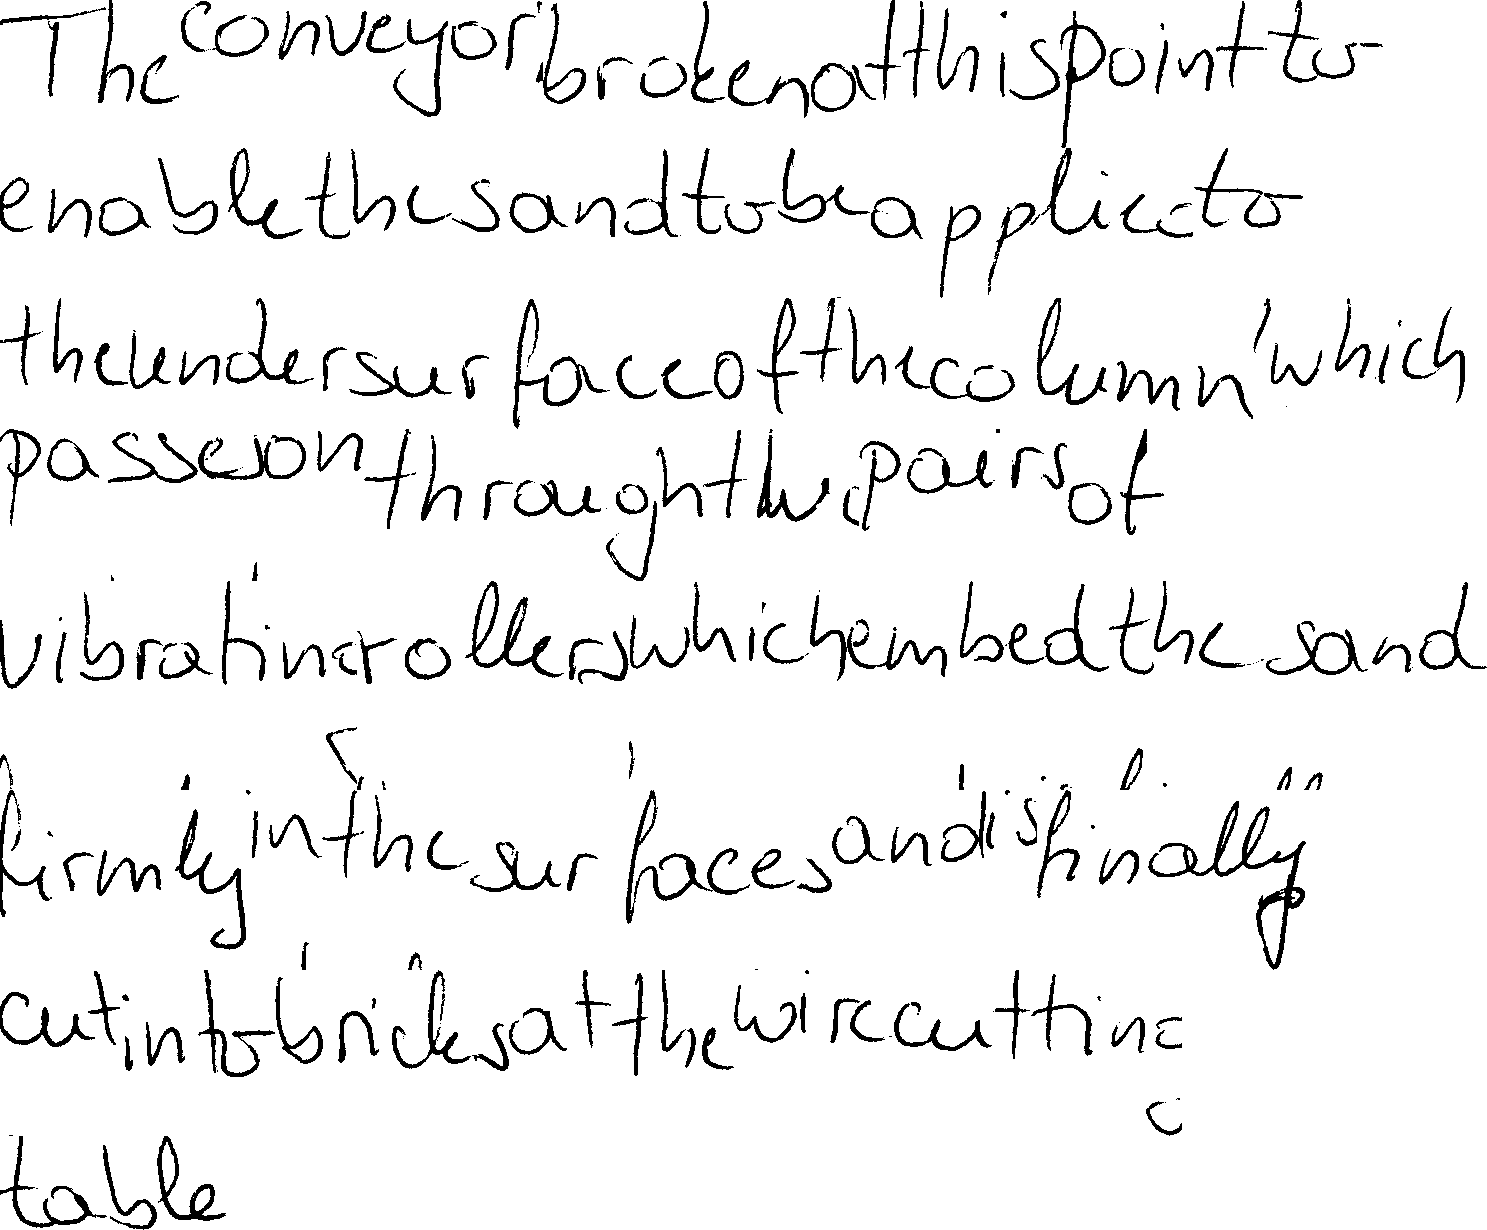 The conveyor broken at this point to
enable the sand to be applied to
the undersurface of the column which
passes on through two pairs of
vibrating rollers which embed the sand
firmly in the surfaces and is finally
cut into bricks at the wire cutting
table